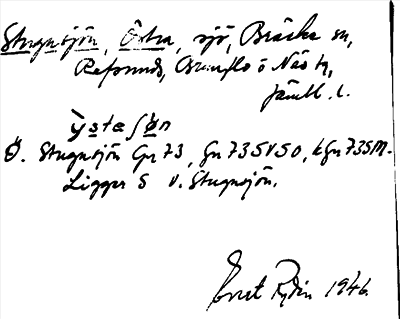 Stugusjön, Östra, sjö, Bräcke sn,
Refsunds, Brunflo o Näs tg,
Jämtl. l.
ỳstəʃøn
Ö. Stugusjön Gr 73, Gn 73SVSO, kGn 73SM.
Ligger S v. Stugusjön.
Ernst Rydin 1946.